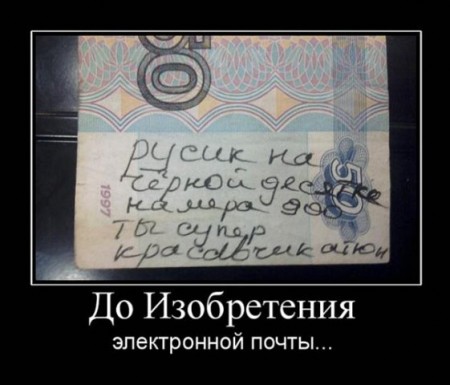 50
русик на
чёрной десятке
намера 900
ты супер
красавчик
1997
50
До Изобретения
электронной почты...